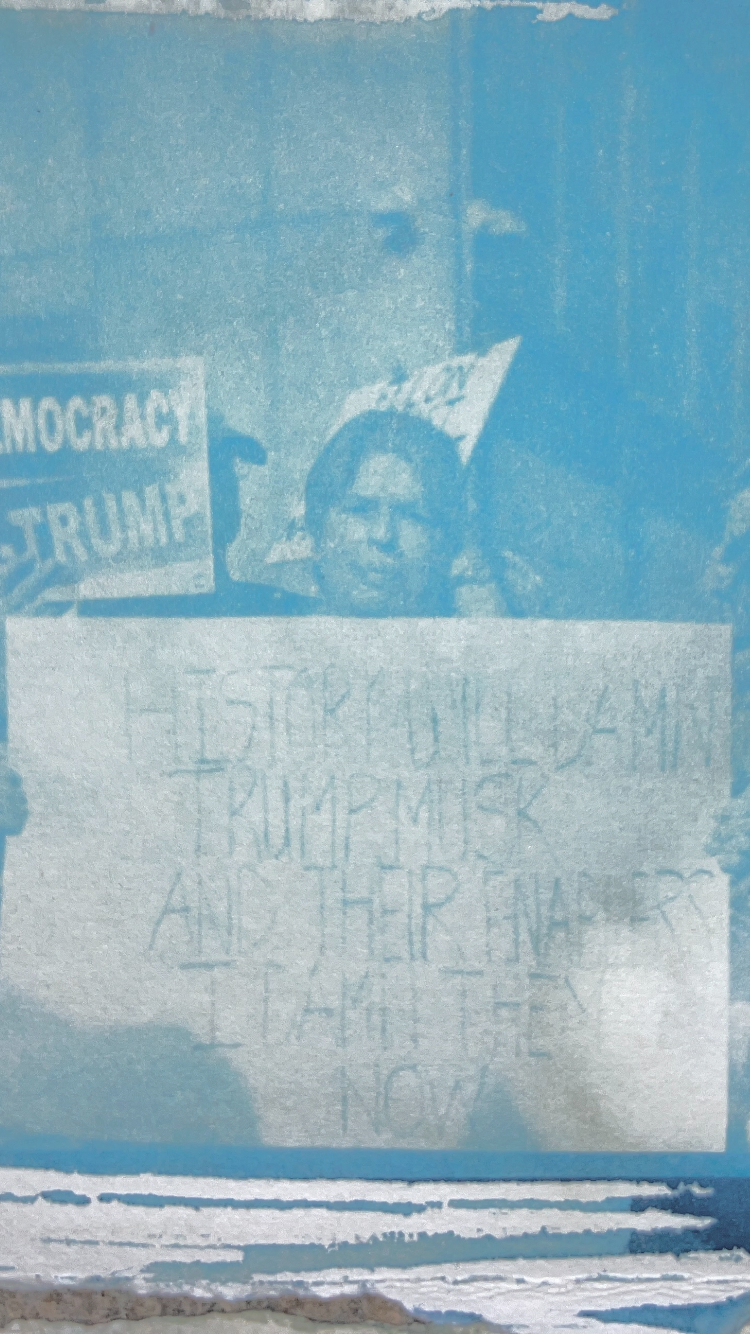 MOCRACY
TRUMP
HISTORY WILL DAMN
TRUMP MUSK
AND THEIR
I DAMN THEM
NOW